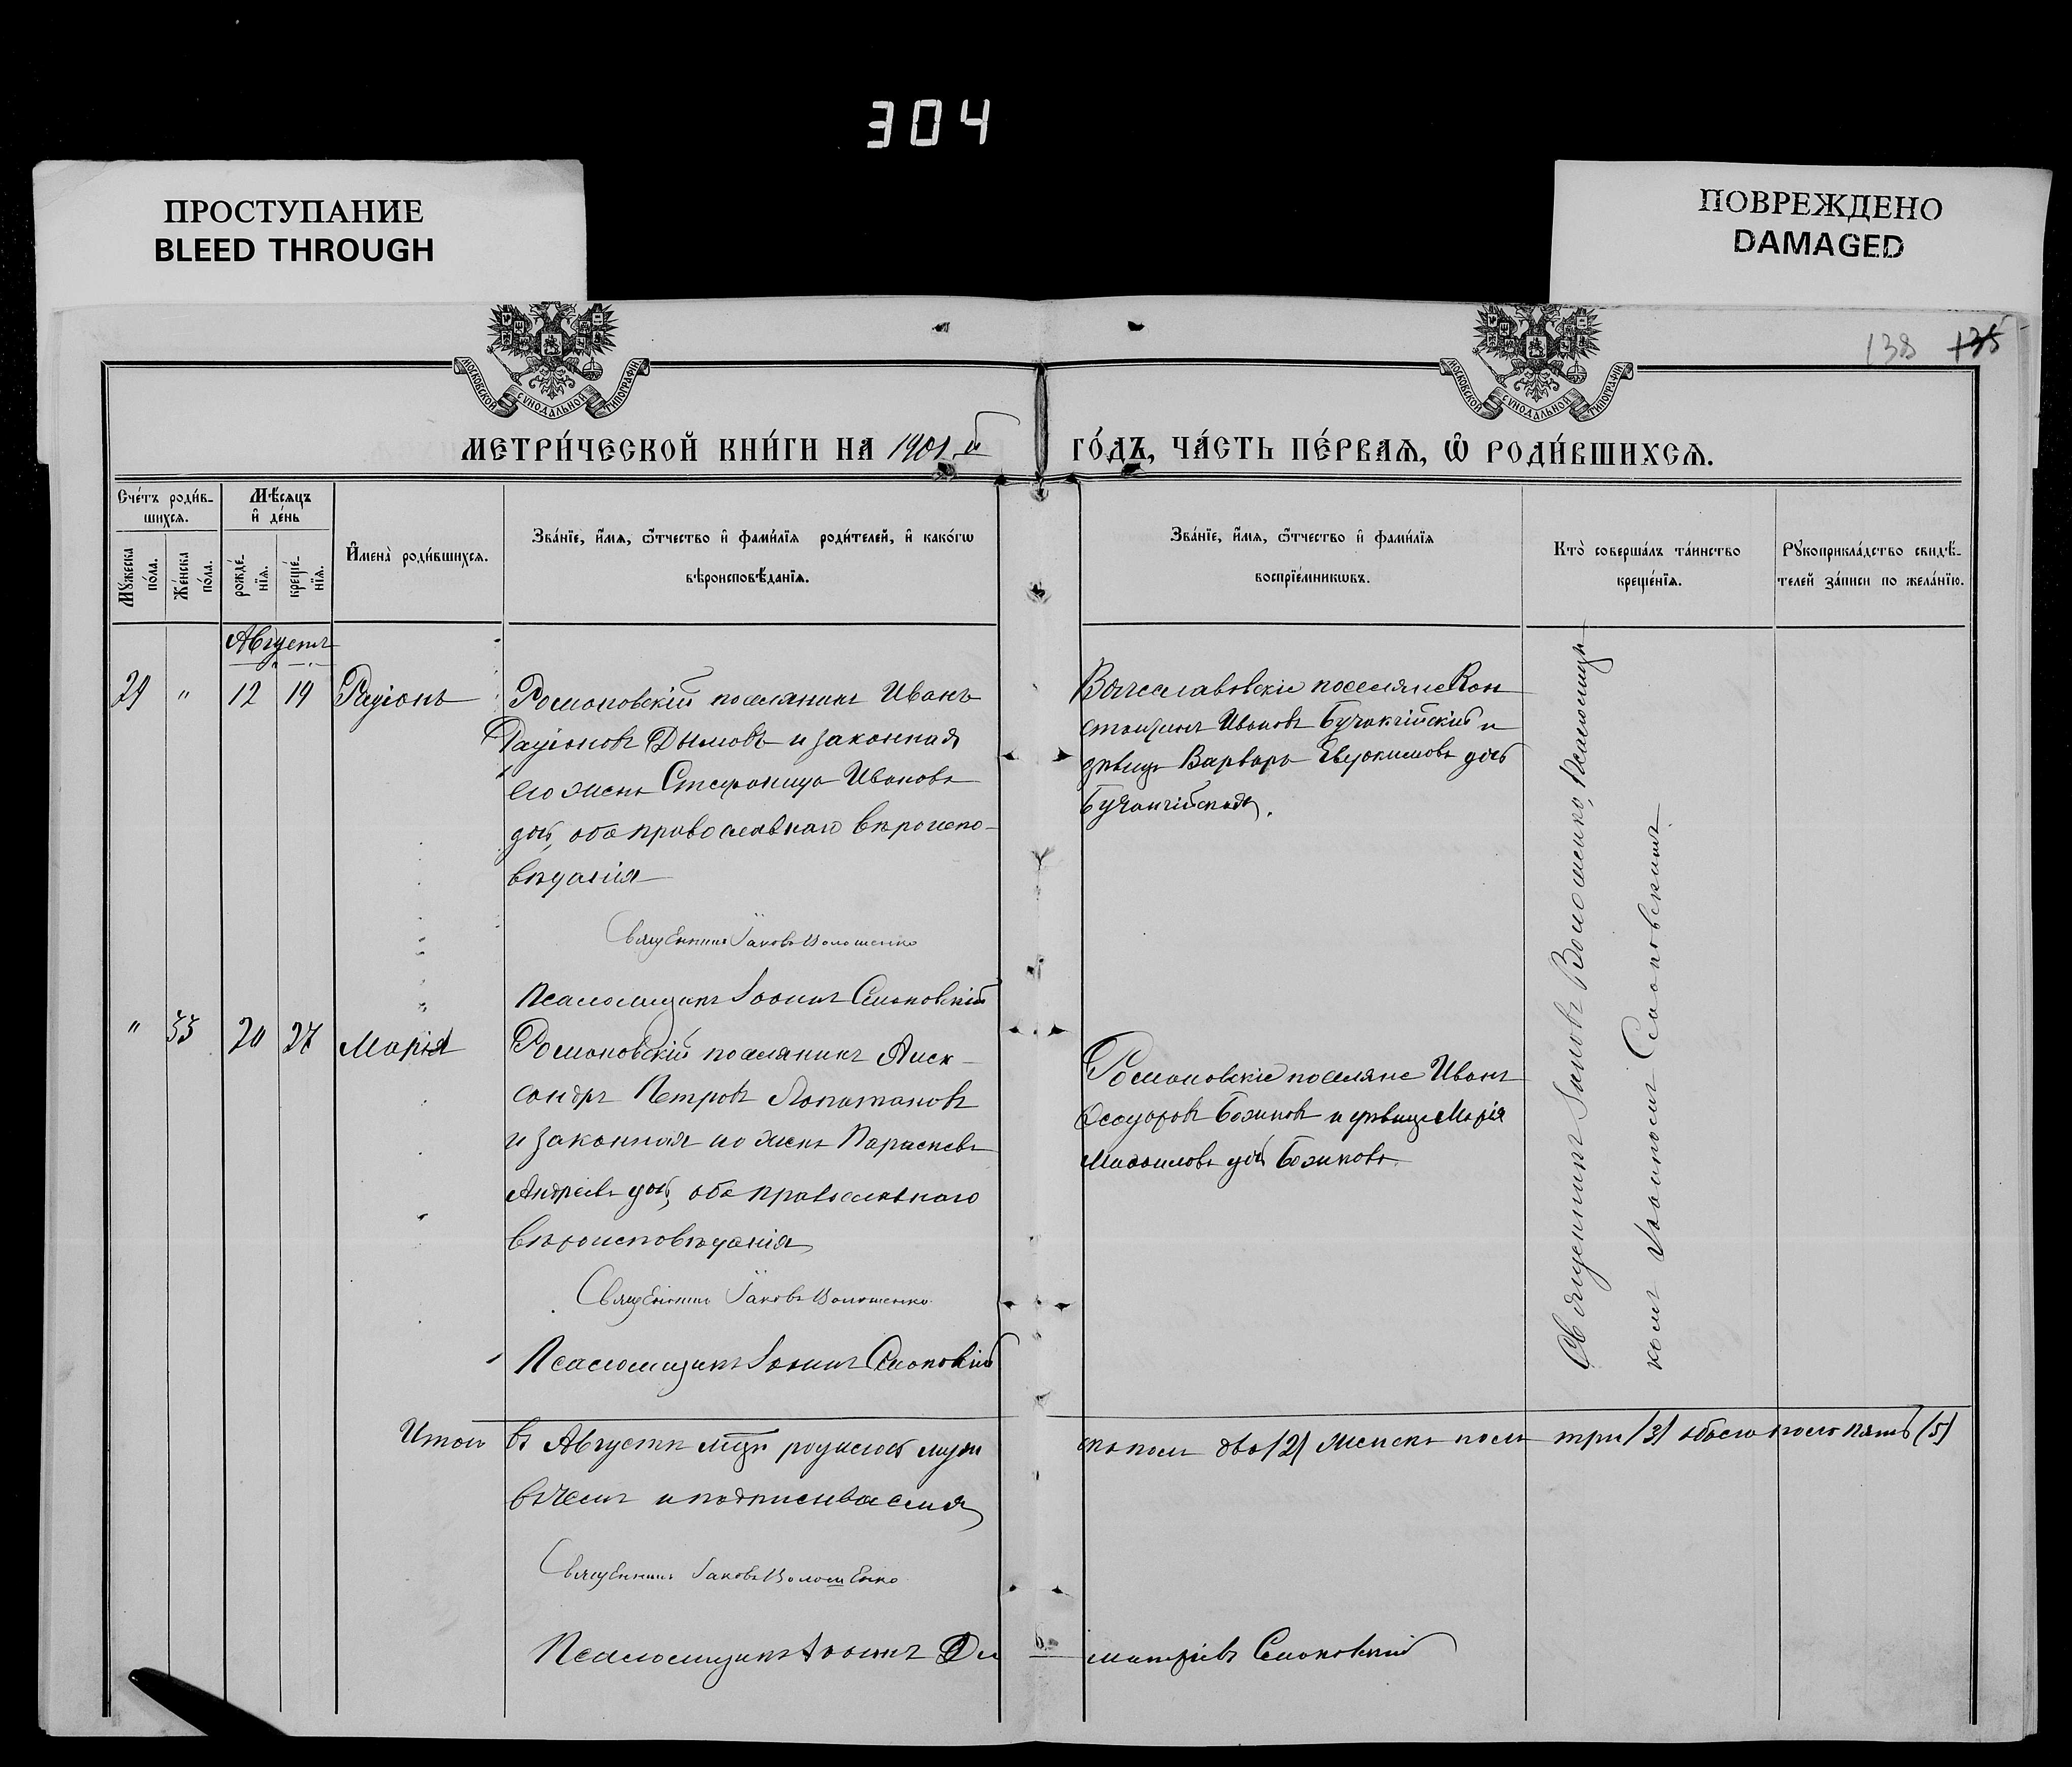 304
ПРОСТУПАНИЕ
BLEED THROUGH
ПОВРЕЖДЕНО
DAMAGED
138 135
МОСКОВСКОЙ СѴНОДАЛЬНОЙ ТИПОГРАФІИ
МОСКОВСКОЙ СѴНОДАЛЬНОЙ ТИПОГРАФІИ
МЕТРИ́ЧЕСКОЙ КНИ́ГИ НА 1901-й ГО́ДЪ, ЧА́СТЬ ПЕ́РВАѦ, Ѡ҆ РОДИ́ВШИХСѦ.
Сче́тъ роди́в-
шихсѧ.
Мꙋжеска по́ла.
Же́нска по́ла.
Мѣ́сѧцъ
и҆ де́нь
рожде́-
нїѧ.
креще́-
нїѧ.
И҆мена̀ роди́вшихсѧ.
Зва́нїе, и҆́мѧ, ѻ҆́тчество и҆ фами́лїѧ роди́телей, и҆ како́гѡ
вѣроисповѣ́данїѧ.
Зва́нїе, и҆́мѧ, ѻ҆́тчество и҆ фами́лїѧ
воспрїе́мникѡвъ.
Кто̀ соверша́лъ та́инство
креще́нїѧ.
Рꙋкоприкла́дство свидѣ́-
телей за́писи по жела́нїю.
Августъ
29 " 12 19 Радіонъ
Романовскій поселянинъ Иванъ
Радіоновъ Дымовъ и законная
его жена Стефанида Иванова
дочь, оба православнаго вѣроиспо-
вѣданія
Священникъ Іаковъ Волошенко
Псаломщикъ Іоаннъ Симоновскій
Вячеславовскіе поселяне Кон
стантинъ Ивановъ Бучакчійскій и
дѣвица Варвара Евдокимова дочь
Бучакчійская.
" 33 20 27 Марія
Романовскій поселянинъ Алек-
сандръ Петровъ Лопатановъ
и законная его жена Параскева
Андреева дочь, оба православнаго
вѣроисповѣданія
Священникъ Іаковъ Волошенко
Псаломщикъ Іоаннъ Симоновскій
Романовскіе поселяне Иванъ
Ѳеодоровъ Божиновъ и дѣвица Марія
Михаилова дочь Божинова
Священникъ Іаковъ Волошенко, Псаломщи
комъ Іоанномъ Симоновскимъ
Итого въ Августѣ мцѣ родилось муже ска пола два (2) женска пола три (3) обоего пола пять (5)
въ чемъ и подписываемся
Священникъ Іаковъ Волошенко
Псаломщикъ Іоаннъ Ди митріевъ Симоновскій